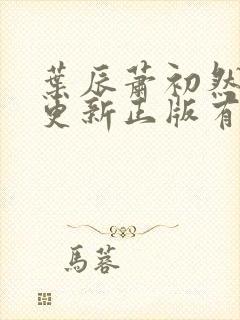 葉辰蕭初然
更新正版有
馬蓉